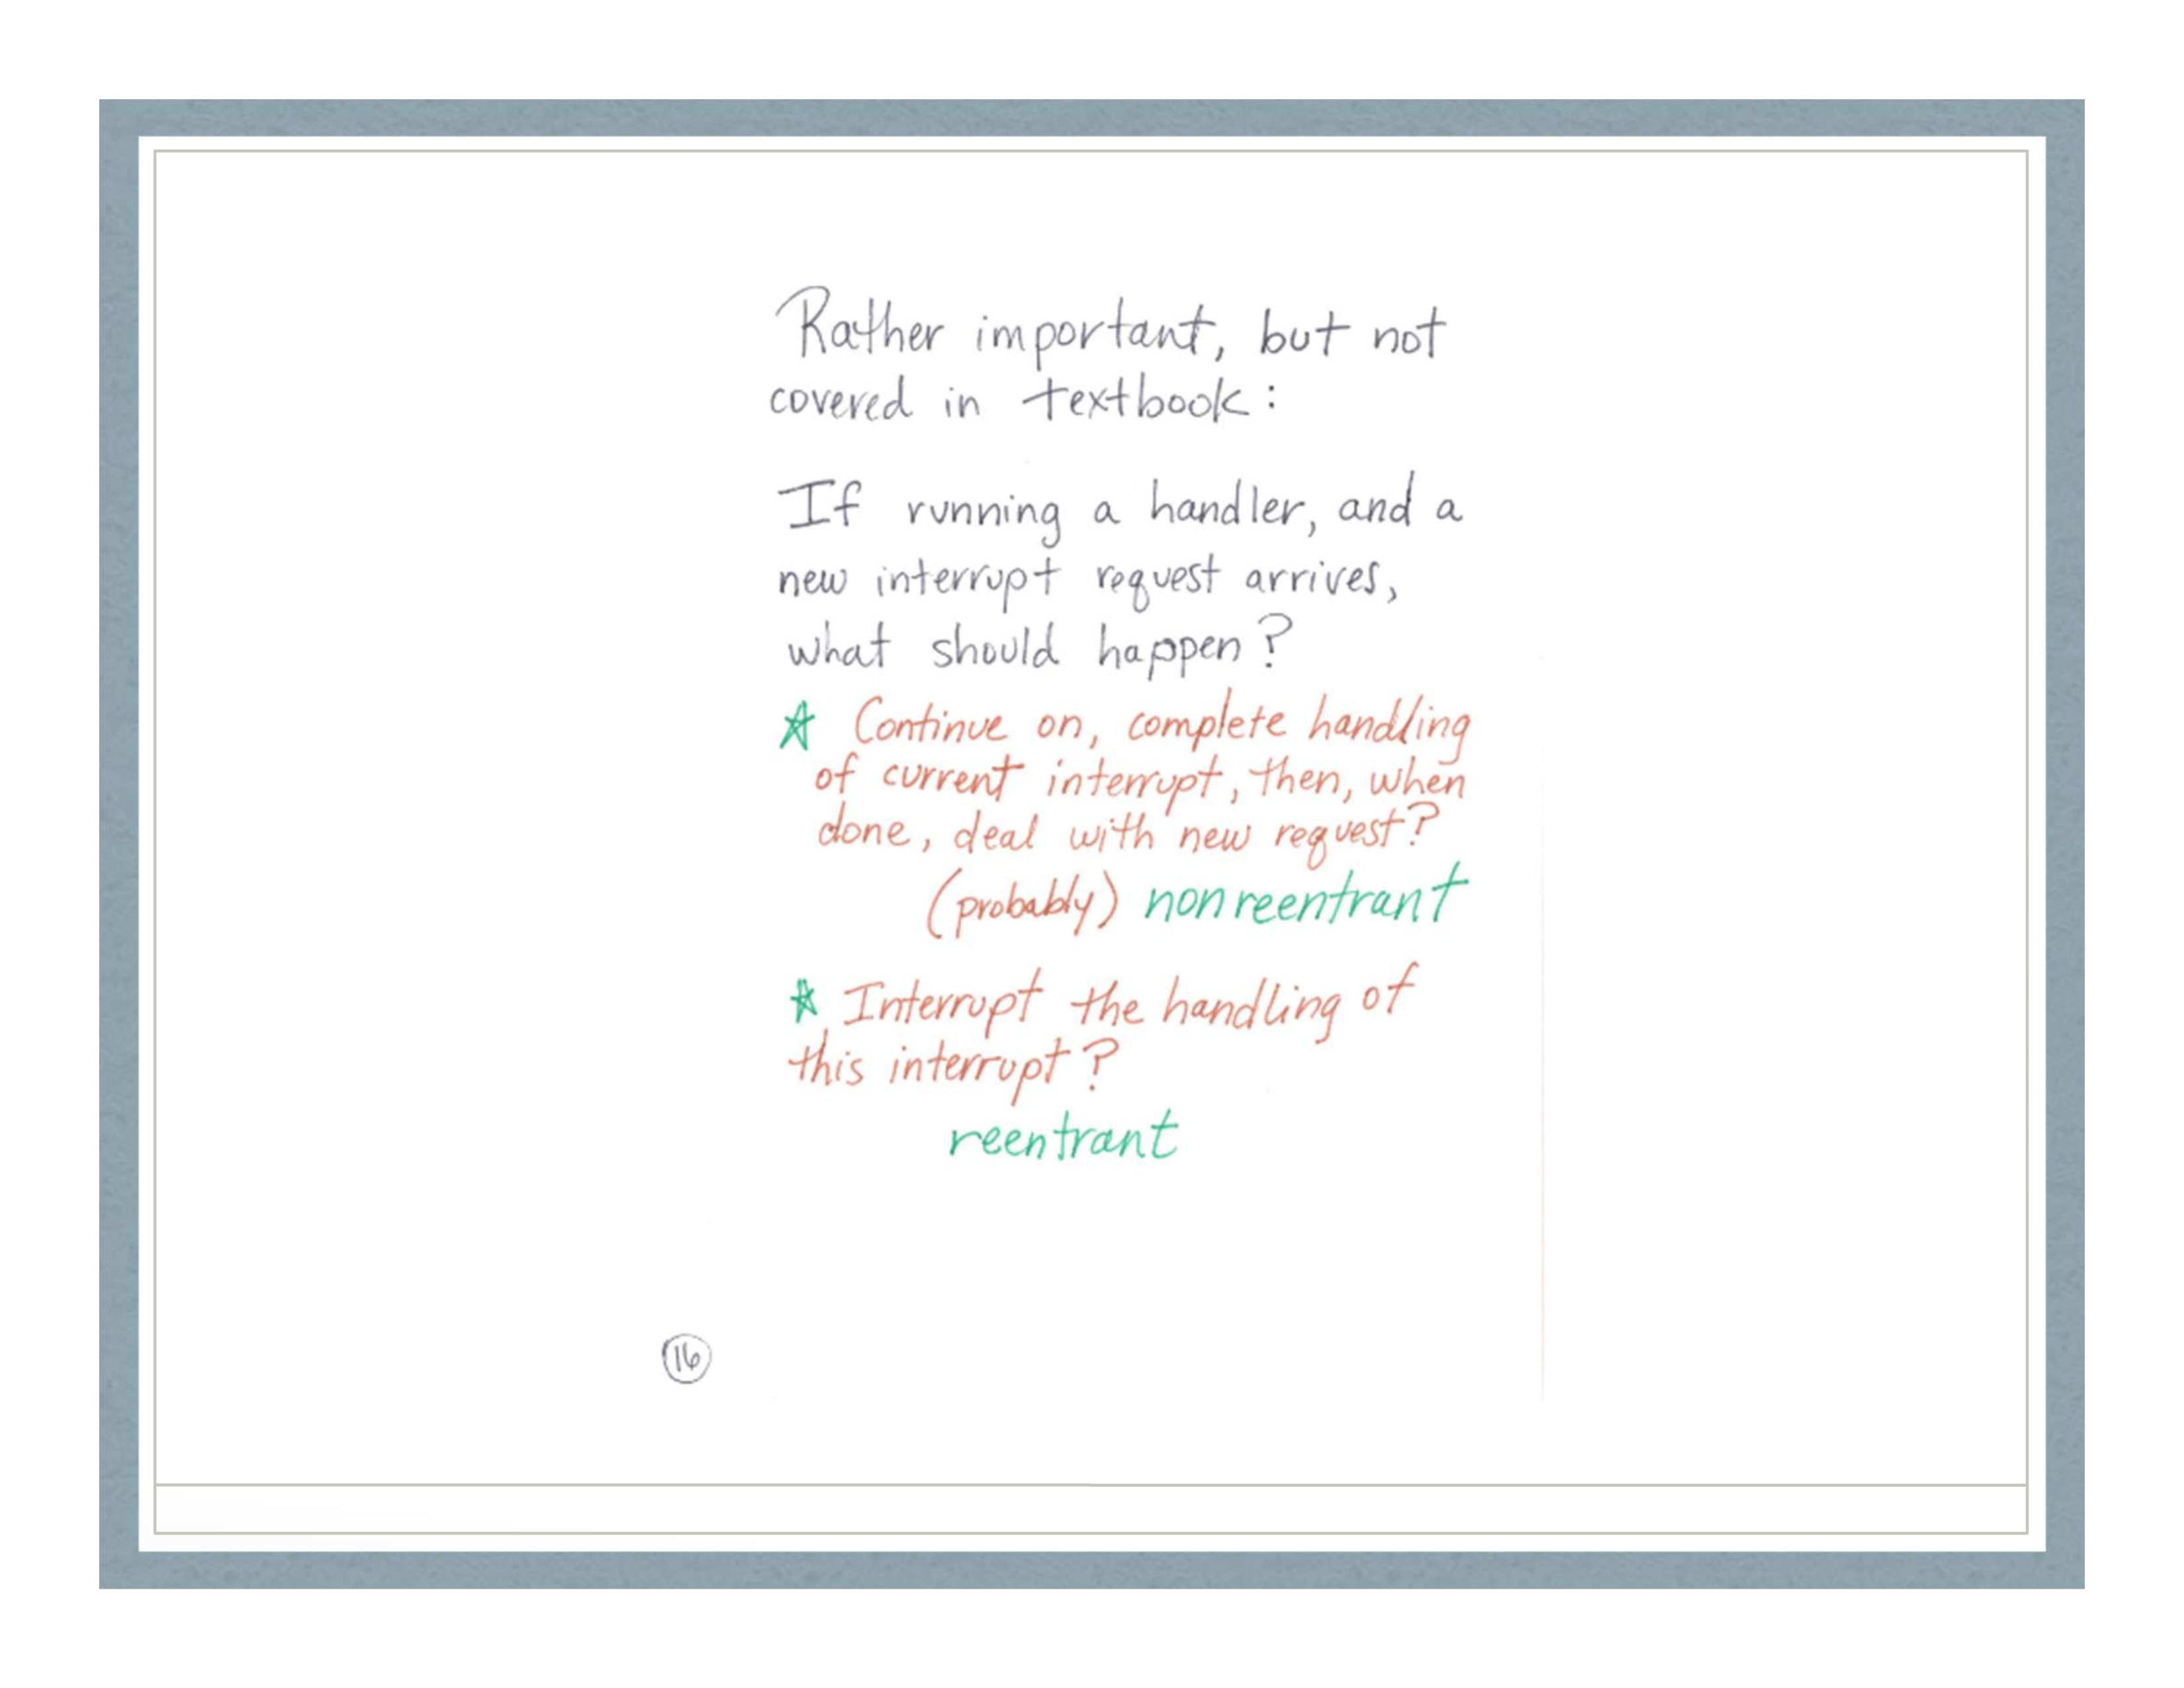 Rather important, but not
covered in textbook:
If running a handler, and a
new interrupt request arrives,
what should happen?
* Continue on, complete handling
of current interrupt, then, when
done, deal with new request?
(probably) nonreentrant
* Interrupt the handling of
this interrupt?
reentrant
16